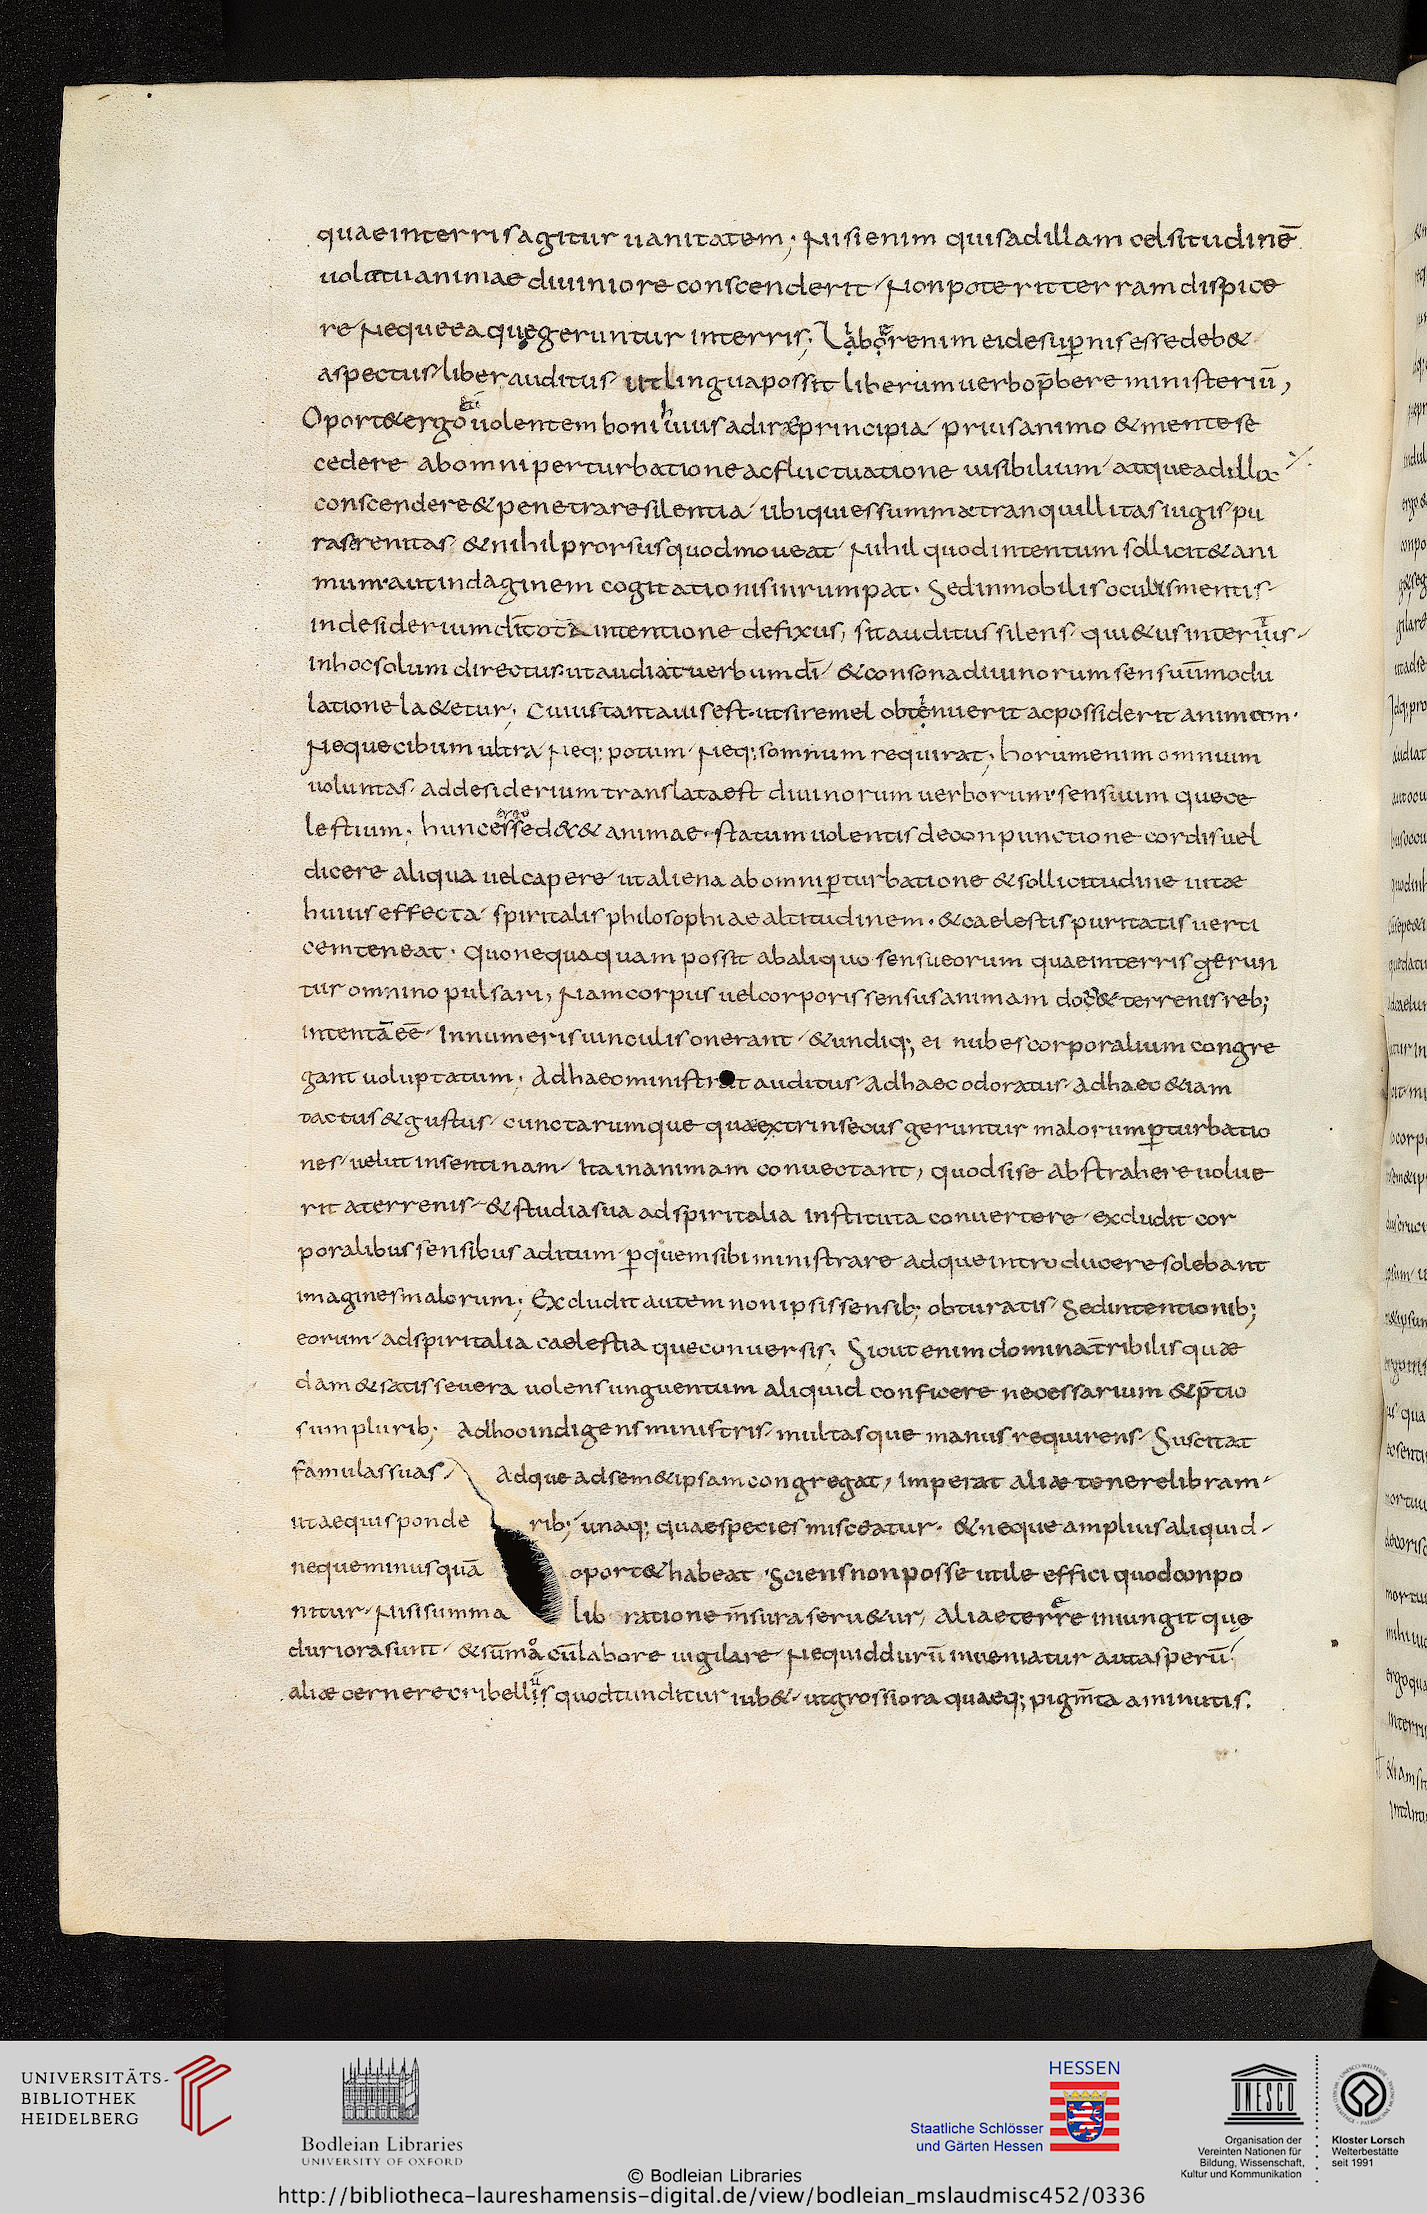 quae in terris agitur uanitatem; Nisi enim quis ad illam celsitudinē
uolatu animae diuiniore conscenderit Non poterit terram dispice
re Neque ea quę geruntur in terris; Laborenim ei de sup̄nis esse deb&
aspectus liber auditus ut lingua possit liberum uerbo p̄bere ministeriū,
Oport& ergo uolentem boni huius adiræ principia prius animo & mente se
cedere ab omni perturbatione ac fluctuatione uisibilium atque ad illa
conscendere & penetrare silentia ubi quies summa tranquillitas iugis pu
ra serenitas & nihil prorsus quod moueat Nihil quod intentum sollicit& ani
mum aut indaginem cogitationis inrumpat. Sed inmobilis oculis mentis
in desiderium dī tota intentione defixus, sit auditus silens qui & usinterius
in hoc solum directus ut audiat uerbum dī & consona diuinorum sensuūmodu
latione la&etur; Cuius tanta uis est ut si semel obtenuerit ac possiderit animam.
Neque cibum ultra Neq; potum Neq; somnum requirat; horum enim omnium
uoluntas ad desiderium translata est diuinorum uerborum sensuum que ce
lestium; hunc ergo esse dec& & animae statum uolentis de conpunctione cordis uel
dicere aliqua uel capere ut aliena ab omni p̱turbatione & sollicitudine uitæ
huius effecta spiritalis philosophiae altitudinem. & caelestis puritatis uerti
cem teneat. Quo nequaquam possit ab aliquo sensu eorum quae in terris gerun
tur omnino pulsari, Nam corpus uel corporis sensus animam doc& terrenis reb;
intentā eē Innumeris uinculis onerant & undiq; ei nubes corporalium congre
gant uoluptatum; Ad haec ministrat auditus Ad haec odoratus Ad haec &iam
tactus & gustus cunctarumque quae extrinsecus geruntur malorum p̱turbatio
nes uelut in sentinam ita in animam conuectant, quod si se abstrahere uolue
rit a terrenis & studia sua ad spiritalia instituta conuertere excludit cor
poralibus sensibus aditum p̱ quem sibi ministrare adque introducere solebant
imagines malorum; Excludit autem non ipsis sensib; obturatis Sed intentionib;
eorum ad spiritalia caelestia que conuersis; Sicut enim domina t̄ribilis quæ
dam & satis seuera uolens unguentum aliquid conficere necessarium & p̄tio
sum plurib; Ad hoc indigens ministris multasque manus requirens Suscitat
famulas suas Adque ad sem& ipsam congregat, Imperat aliæ tenere libram
ut aequis ponde rib; unaq; quae species misceatur. & neque amplius aliquid
neque minus quā oport& habeat Sciens non posse utile effici quod conpo
nitur Nisi summa lib ratione m̄sura seru&ur, Aliae terrere iniungit quę
duriora sunt & sūma cū labore uigilare Ne quid durū inueniatur aut asperū
aliæ cernere cribellis quod tunditur iub& ut grossiora quaeq; pigm̄ta a minutis.
UNIVERSITÄTS-
BIBLIOTHEK
HEIDELBERG
Bodleian Libraries
UNIVERSITY OF OXFORD
HESSEN
Staatliche Schlösser
und Gärten Hessen
UNESCO
Organisation der
Vereinten Nationen für
Bildung, Wissenschaft,
Kultur und Kommunikation
Kloster Lorsch
Welterbestätte
seit 1991
© Bodleian Libraries
http://bibliotheca-laureshamensis-digital.de/view/bodleian_mslaudmisc452/0336